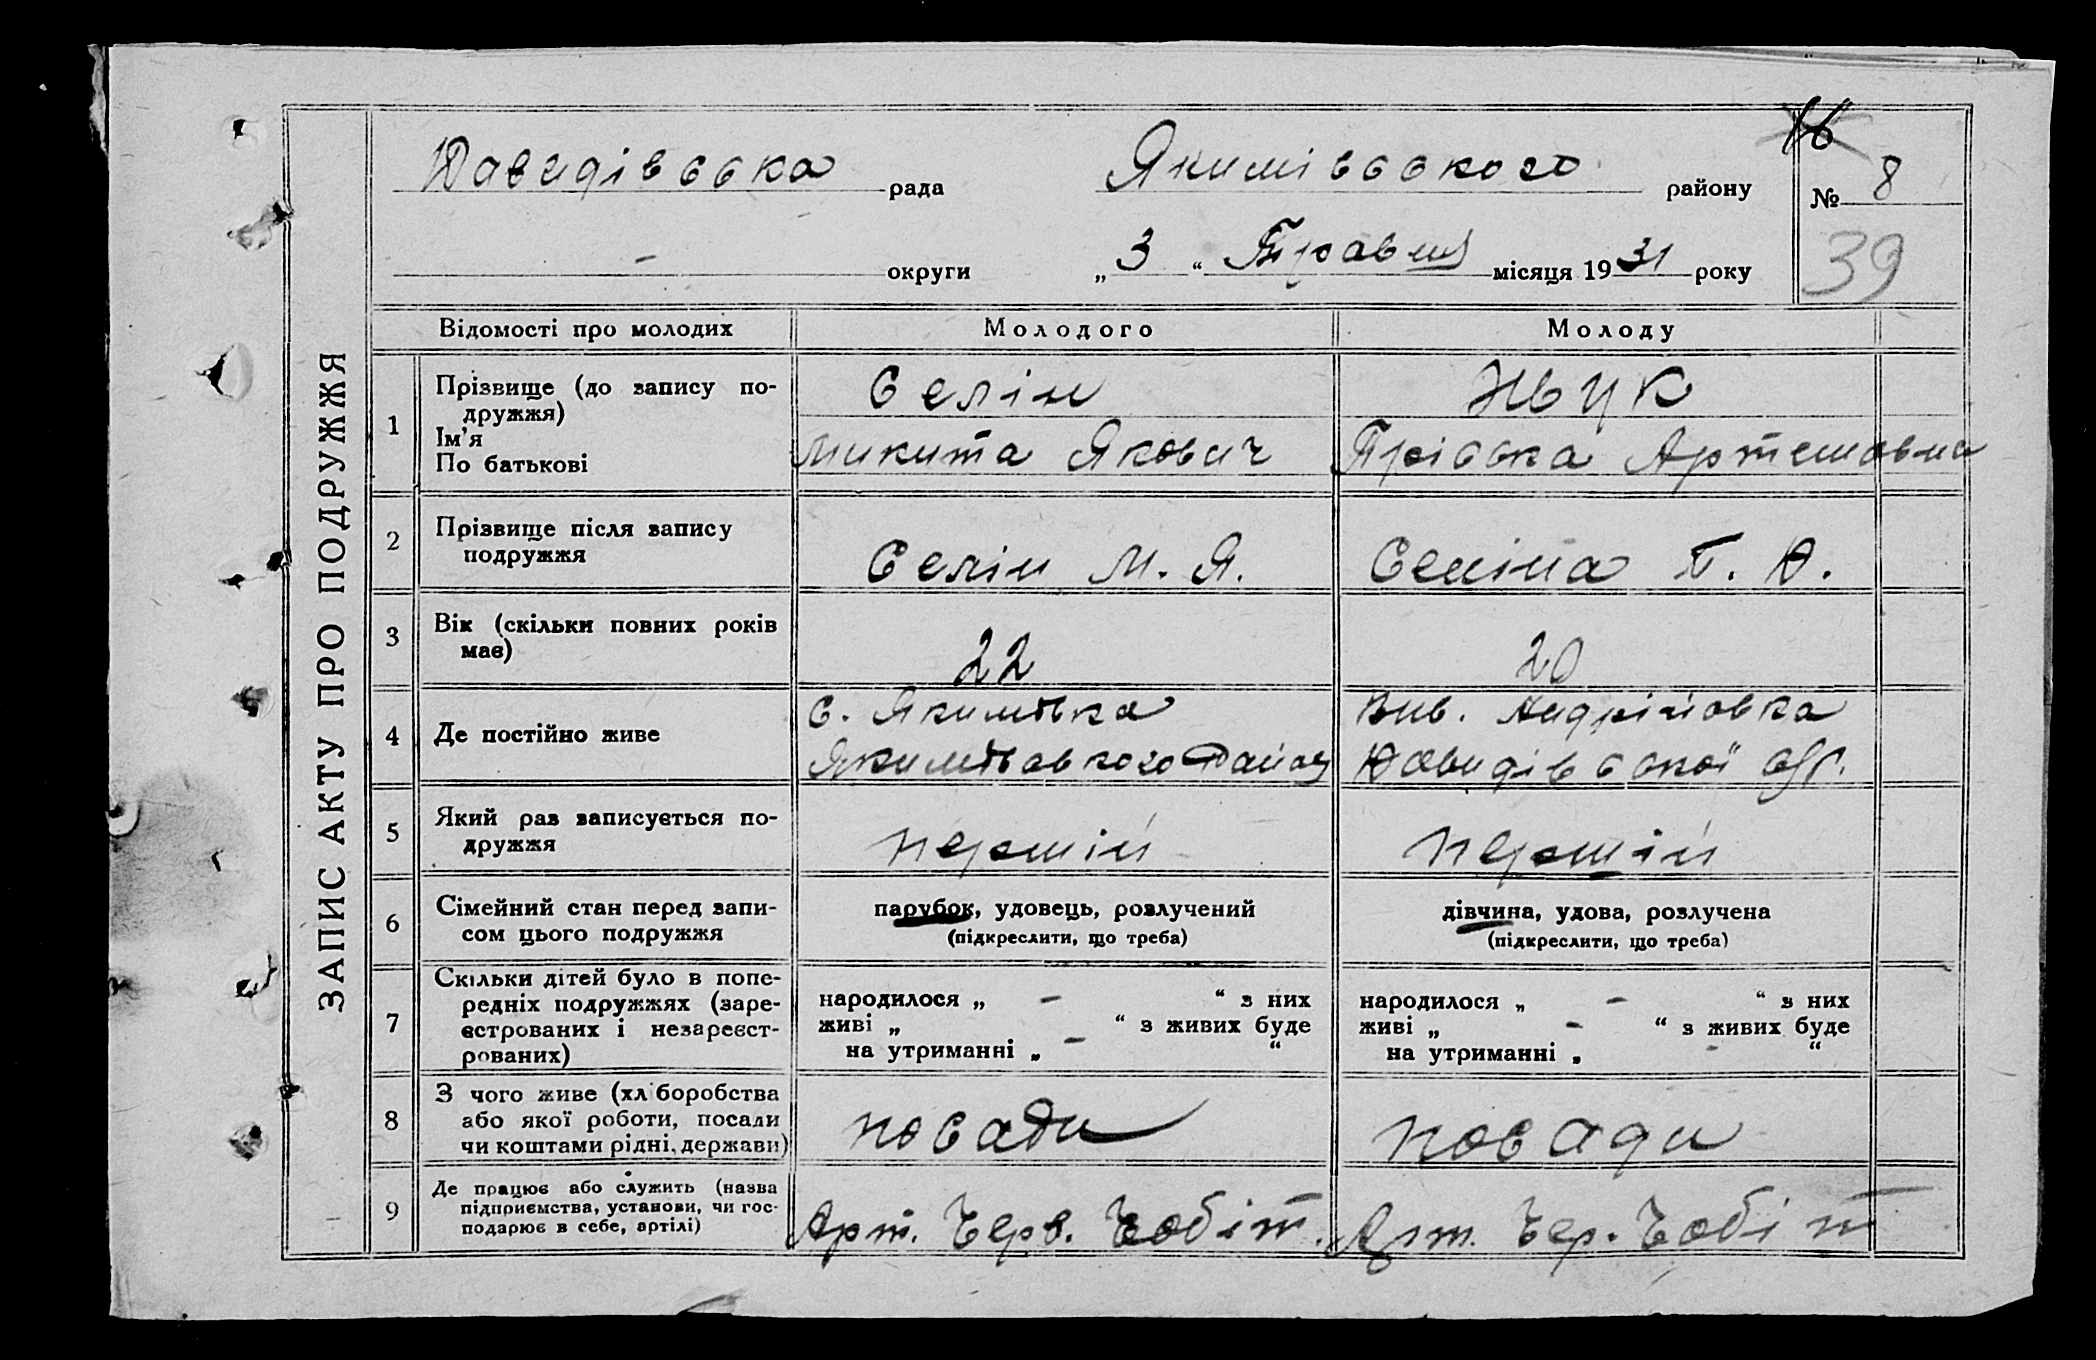 ЗАПИС АКТУ ПРО ПОДРУЖЖЯ
Давидівська рада Якимівського району № 8
16
- округи „ 3 “ Травня місяця 1931 року
39
Відомості про молодих Молодого Молоду
1 Прізвище (до запису по-
дружжя)
Ім’я
По батькові
Селін
Микита Якович
Жук
Прiська Артемовна
2 Прізвище після запису
подружжя
Селін М. Я.
Селіна П. А.
3 Вік (скільки повних років
має)
22
20
4 Де постійно живе
с. Якимівка
Якимівського Району
Вис. Андрійовка
Давидівської с/р.
5 Який раз записується по-
дружжя
першій
першій
6 Сімейний стан перед запи-
сом цього подружжя
парубок, удовець, розлучений
(підкреслити, що треба)
дівчина, удова, розлучена
(підкреслити, що треба)
7 Скільки дітей було в попе-
редніх подружжях (заре-
єстрованих і незареєст-
рованих)
народилося „ - “ з них
живі „ - “ з живих буде
на утриманні „ - “
народилося „ - “ з них
живі „ - “ з живих буде
на утриманні „ - “
8 З чого живе (хліборобства
або якої роботи, посади
чи коштами рідні, держави)
посади
посади
9 Де працює або служить (назва
підприємства, установи, чи гос-
подарює в себе, артілі)
Арт. Черв. Чобіт.
Арт. Чер. Чобіт